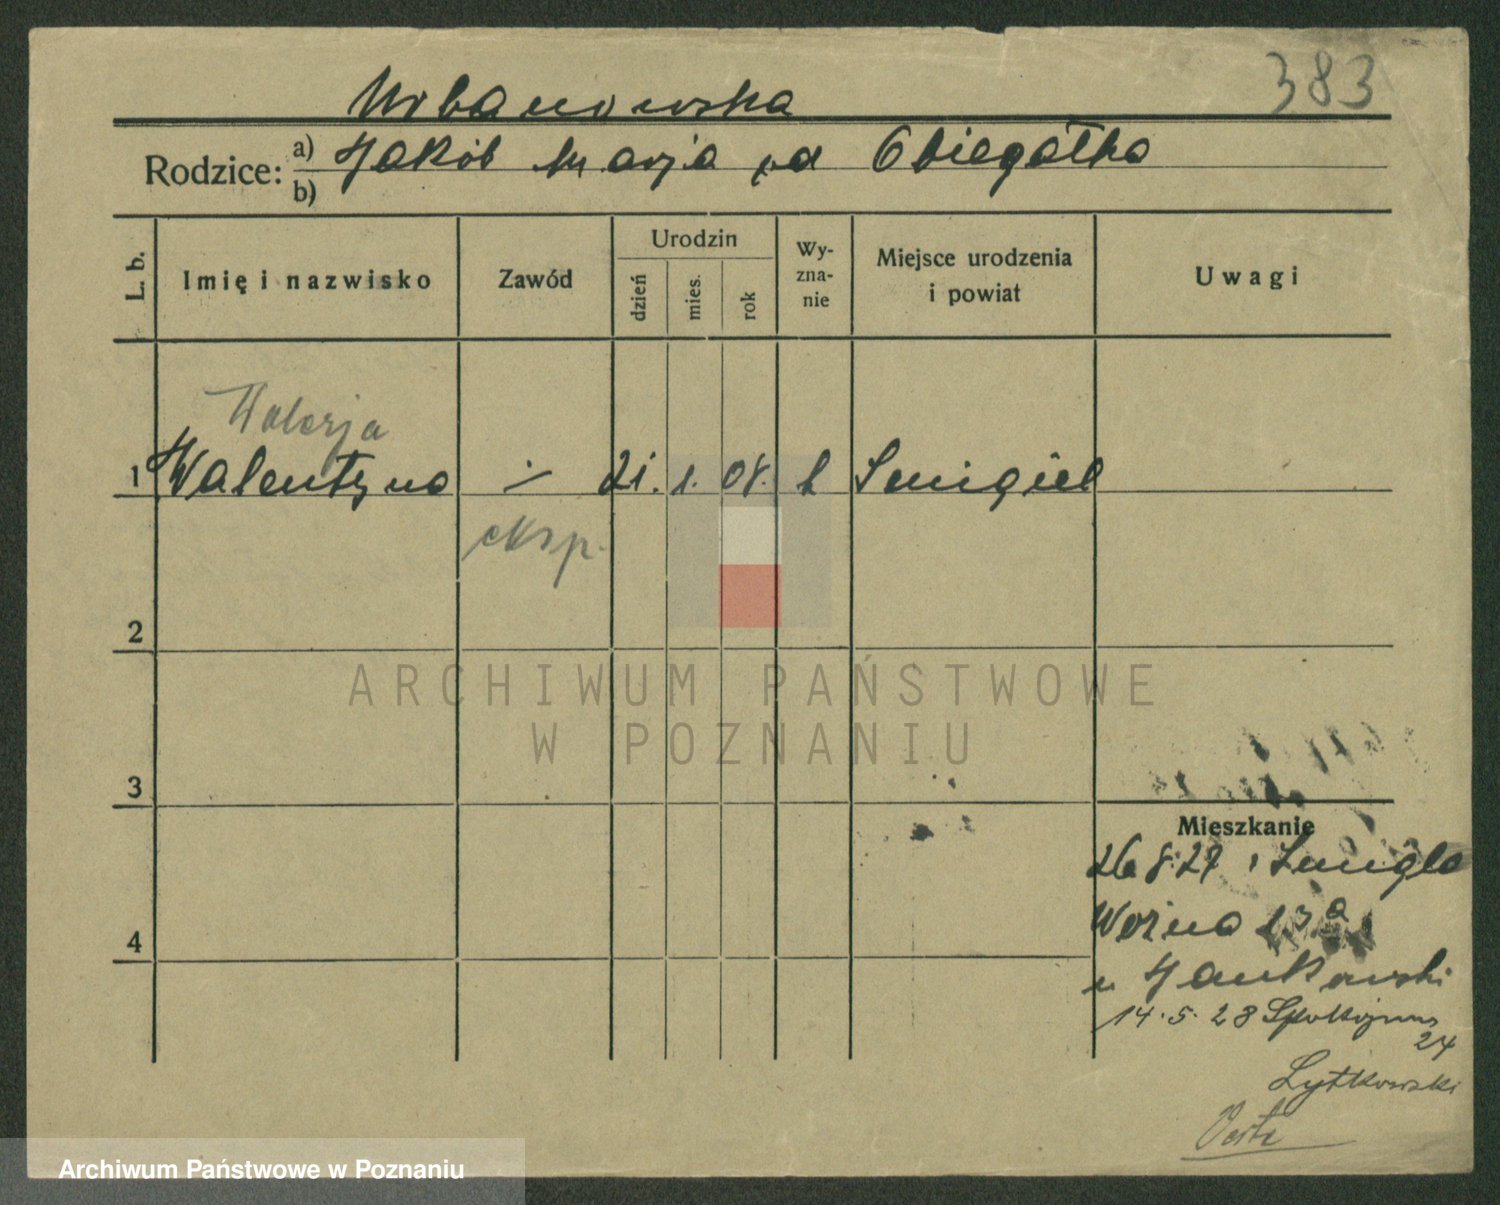 383
Urbanowska
Rodzice: a) Jakób Marja zd Obiegałka
b)
L. b.
Imię i nazwisko
Zawód
Urodzin
dzień
mies.
rok
Wy-
zna-
nie
Miejsce urodzenia
i powiat
Uwagi
Walerja
1 Walentyna 21. 1. 08. k Smigiel
eksp.
2
ARCHIWUM PAŃSTWOWE
W POZNANIU
3
Mieszkanie
26 8.27 z Smigla
Woźna 13a
4
u Jankowski
14.5.28 Spokojna
24
Lytkowski
Archiwum Państwowe w Poznaniu